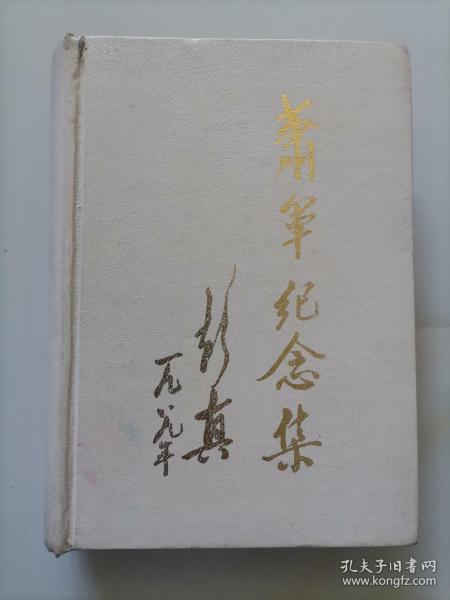 蕭軍纪念集
彭真
一九八九年
孔夫子旧书网
www.kongfz.com